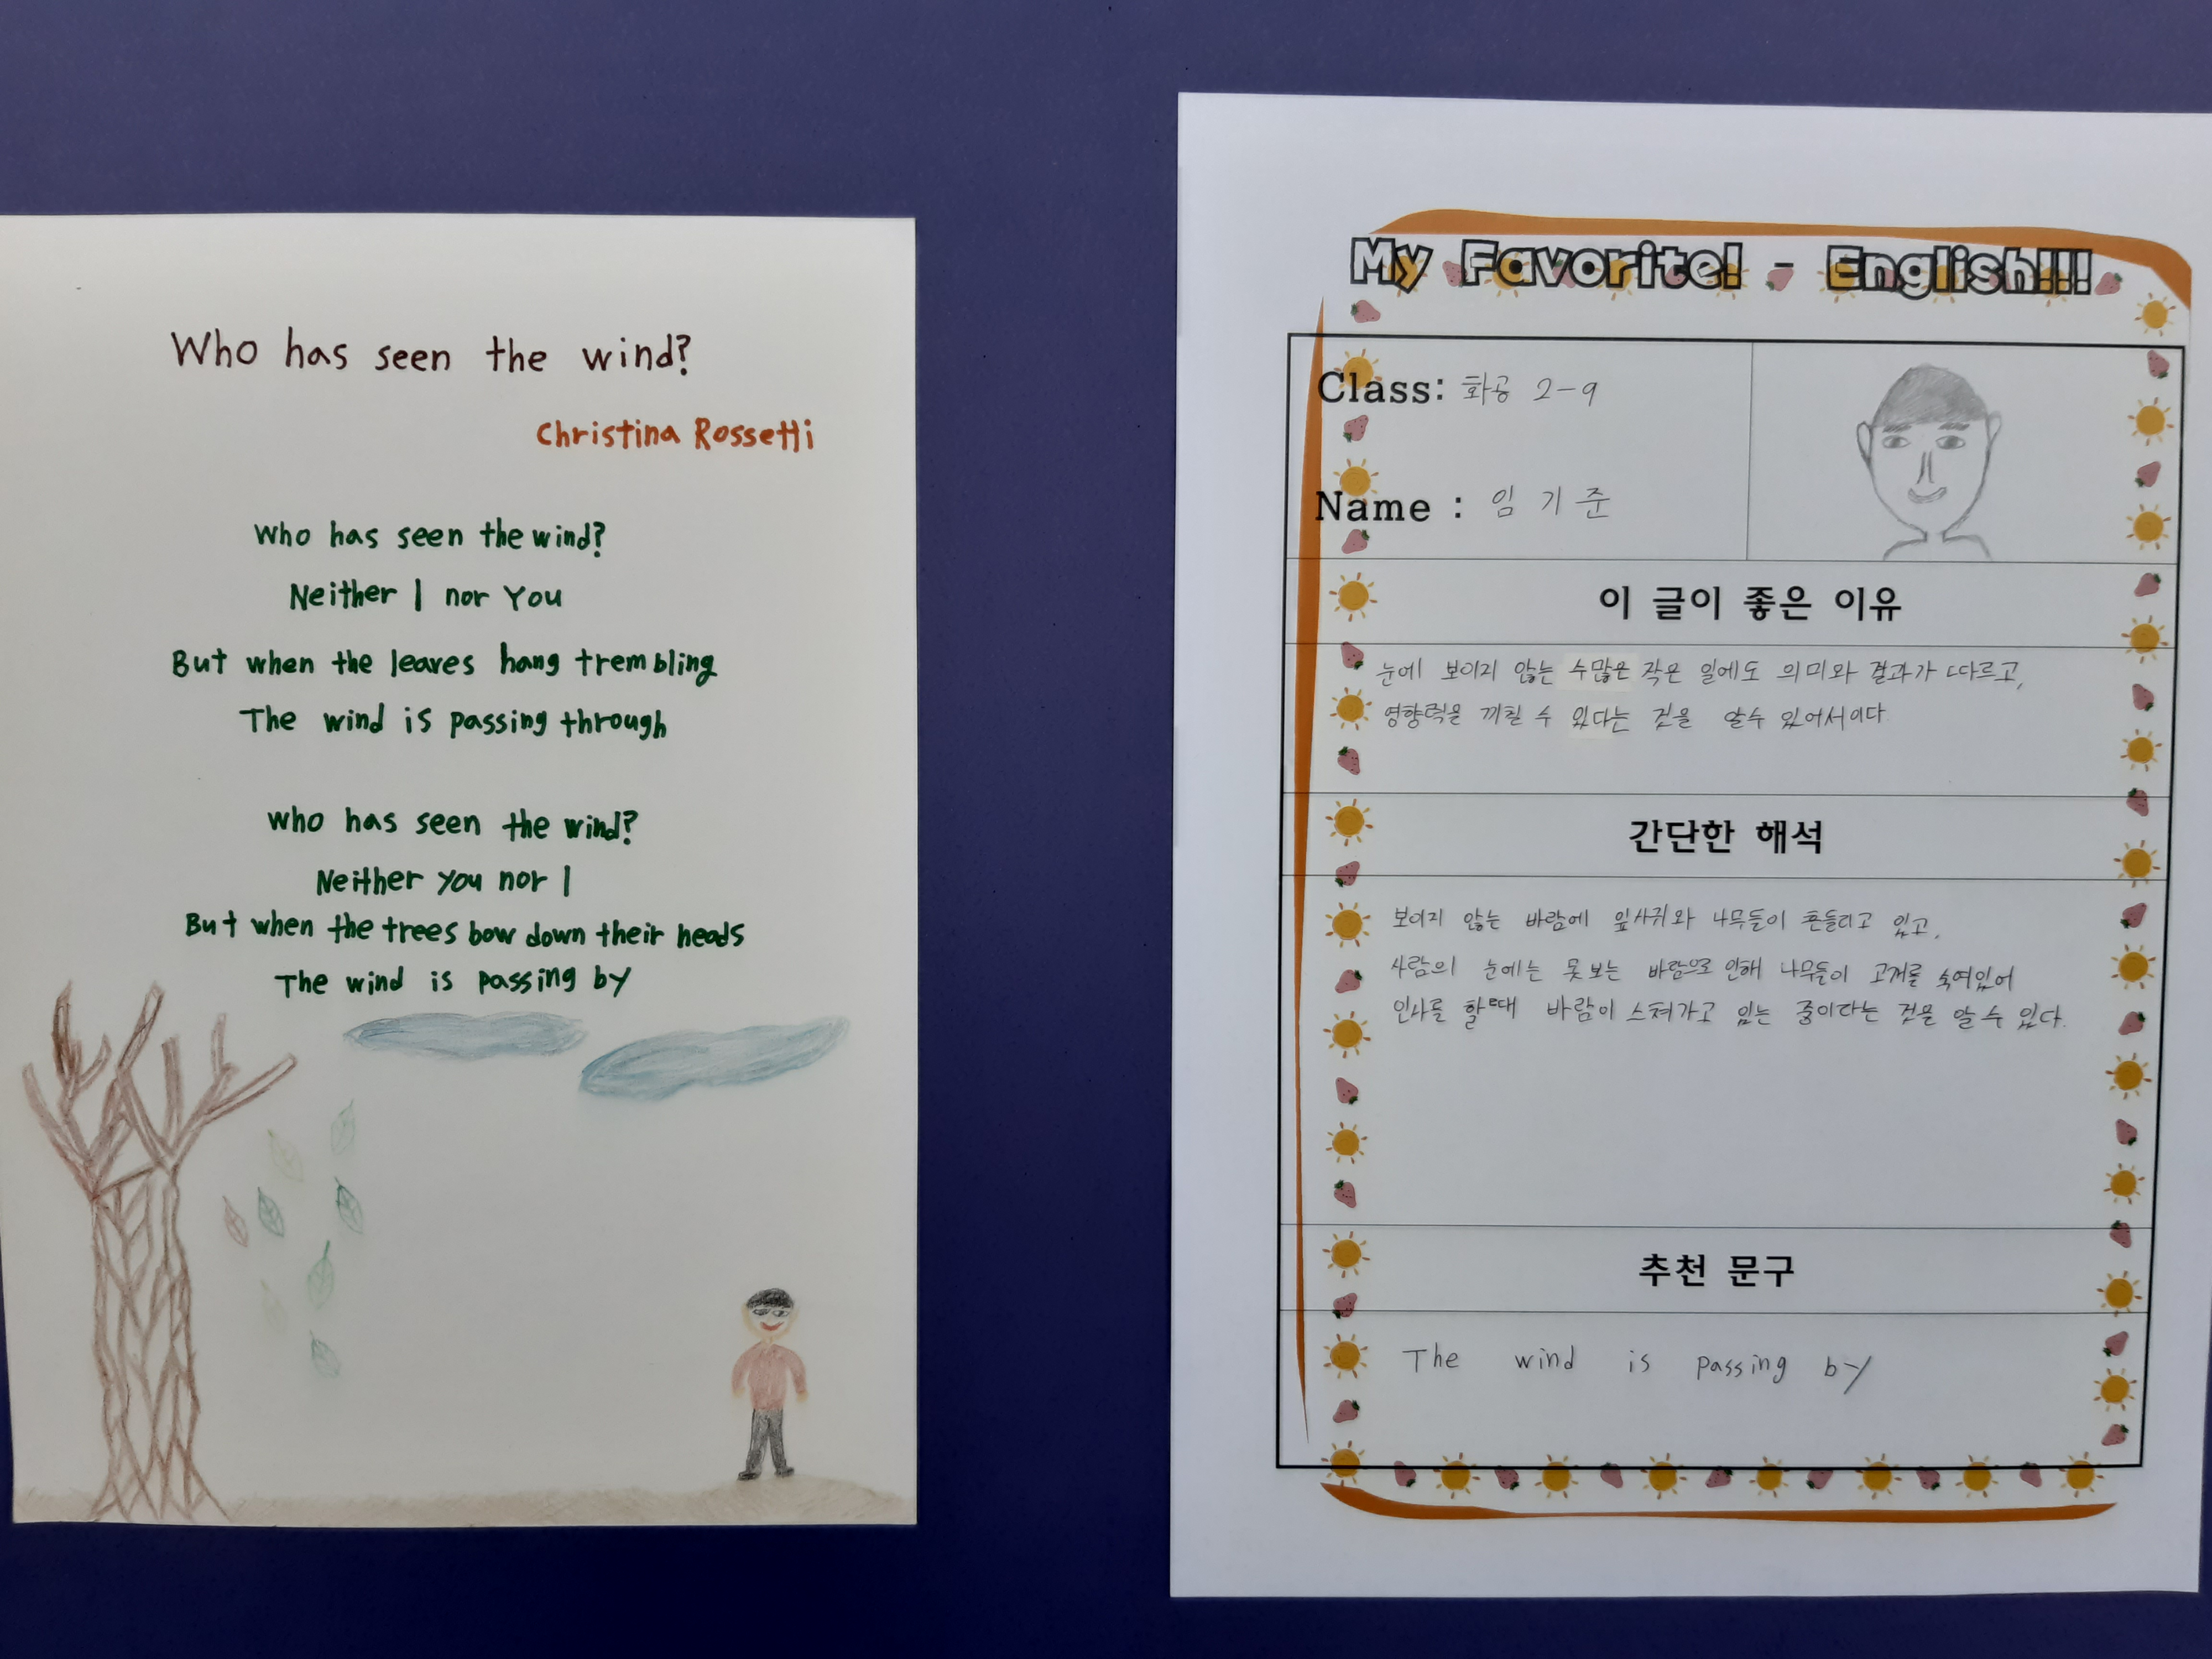 Who has seen the wind?
Christina Rossetti
Who has seen the wind?
Neither I nor You
But when the leaves hang trembling
The wind is passing through
who has seen the wind?
Neither you nor I
But when the trees bow down their heads
The wind is passing by
My Favorite! - English!!!
Class: 화공 2-9
Name : 임기준
이 글이 좋은 이유
눈에 보이지 않는 수많은 작은 일에도 의미와 결과가 따르고,
영향력을 끼칠 수 있다는 것을 알수 있어서이다
간단한 해석
보이지 않는 바람에 잎사귀와 나무들이 흔들리고 있고,
사람의 눈에는 못보는 바람으로 인해 나무들이 고개를 숙여있어
인사를 할때 바람이 스쳐가고 있는 중이라는 것을 알 수 있다.
추천 문구
The wind is passing by